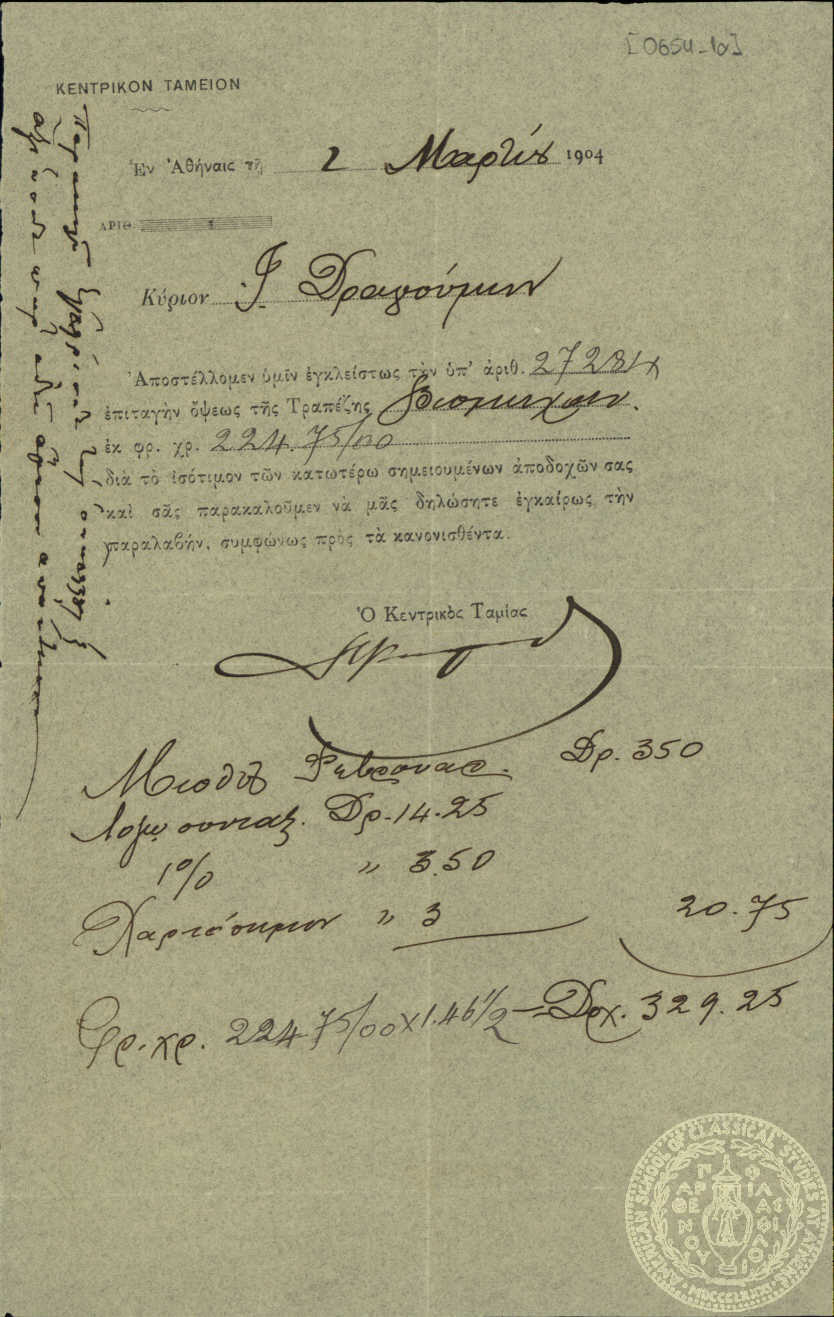 [0654-1α]
ΚΕΝΤΡΙΚΟΝ ΤΑΜΕΙΟΝ
Ἐν Ἀθήναις τῇ 2 Μαρτίου 1904
ΑΡΙΘ.
Κύριον Ἴ. Δραγούμην
Ἀποστέλλομεν ὑμῖν ἐγκλείστως τὴν ὑπ' ἀριθ. 27284
ἐπιταγὴν ὄψεως τῆς Τραπέζης Βιομηχαν.
ἐκ φρ. χρ. 224.75/00
διὰ τὸ ἰσότιμον τῶν κατωτέρω σημειουμένων ἀποδοχῶν σας
καὶ σᾶς παρακαλοῦμεν νὰ μᾶς δηλώσητε ἐγκαίρως τὴν
παραλαβήν, συμφώνως πρὸς τὰ κανονισθέντα.
Ὁ Κεντρικὸς Ταμίας
Μισθὸς Φεβρουαρ. Δρ. 350
συνταξ. Δρ. 14.25
1% " 3.50
Χαρτόσημον " 3 20.75
Φρ. χρ. 224 75/00 × 1.46 1/2 = Δρχ. 329.25
AMERICAN SCHOOL OF CLASSICAL STUDIES AT ATHENS
MDCCCLXXXI
ΠΑΡΘΕΝΟΥ
ΦΙΛΑΣ ΦΙΛΟΙ